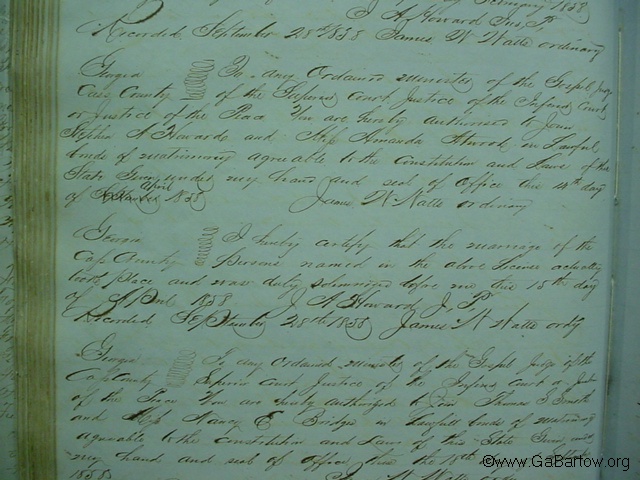 February 1858
J A Howard Jus P.
Recorded September 28th 1858 James W Watts ordinary
Georgia To any Ordained Minister of the Gospel Judge
Cass County of the Superior Court Justice of the Inferior Court
or Justice of the Peace You are hereby authorized to Join
Stephen A Howard and Miss Amanda Atwood in Lawful
bonds of matrimony agreeable to the Constitution and Laws of this
State Given under my hand and seal of Office this 14th day
of September April 1858 James W Watts ordinary
Georgia I hereby certify that the marriage of the
Cass County persons named in the above License actually
took place and was duly solemnized before me this 15th day
of April 1858 J A Howard J. P.
Recorded September 28th 1858 James W Watts ordy
Georgia To any Ordained Minister of the Gospel Judge of the
Cass County Superior Court Justice of the Inferior Court or Just
of the Peace You are hereby authorized to Join Thomas
and Miss Nancy E Bridges in Lawfull bonds of matrimony
agreeable to the constitution and Laws of this State Given under
my hand and seal of office this the 18th day of
1858 James W Watts ordy
©www.GaBartow.org